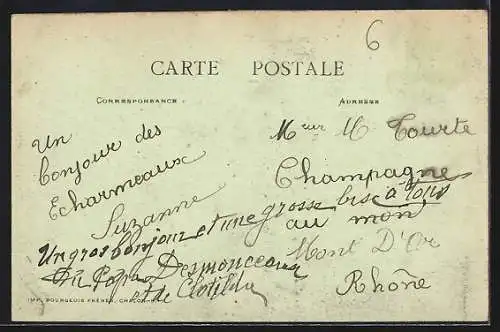 6
CARTE POSTALE
CORRESPONDANCE
ADRESSE
Un
bonjour des
Echarmeaux
Suzanne
Un gros bonjour et une grosse bise à tous
Du Papa Desmonceaux
et de Clotilde
Meur M Tourte
Champagne
au mon
Mont D'Or
Rhône
IMP. BOURGEOIS FRÈRES, CHALON-